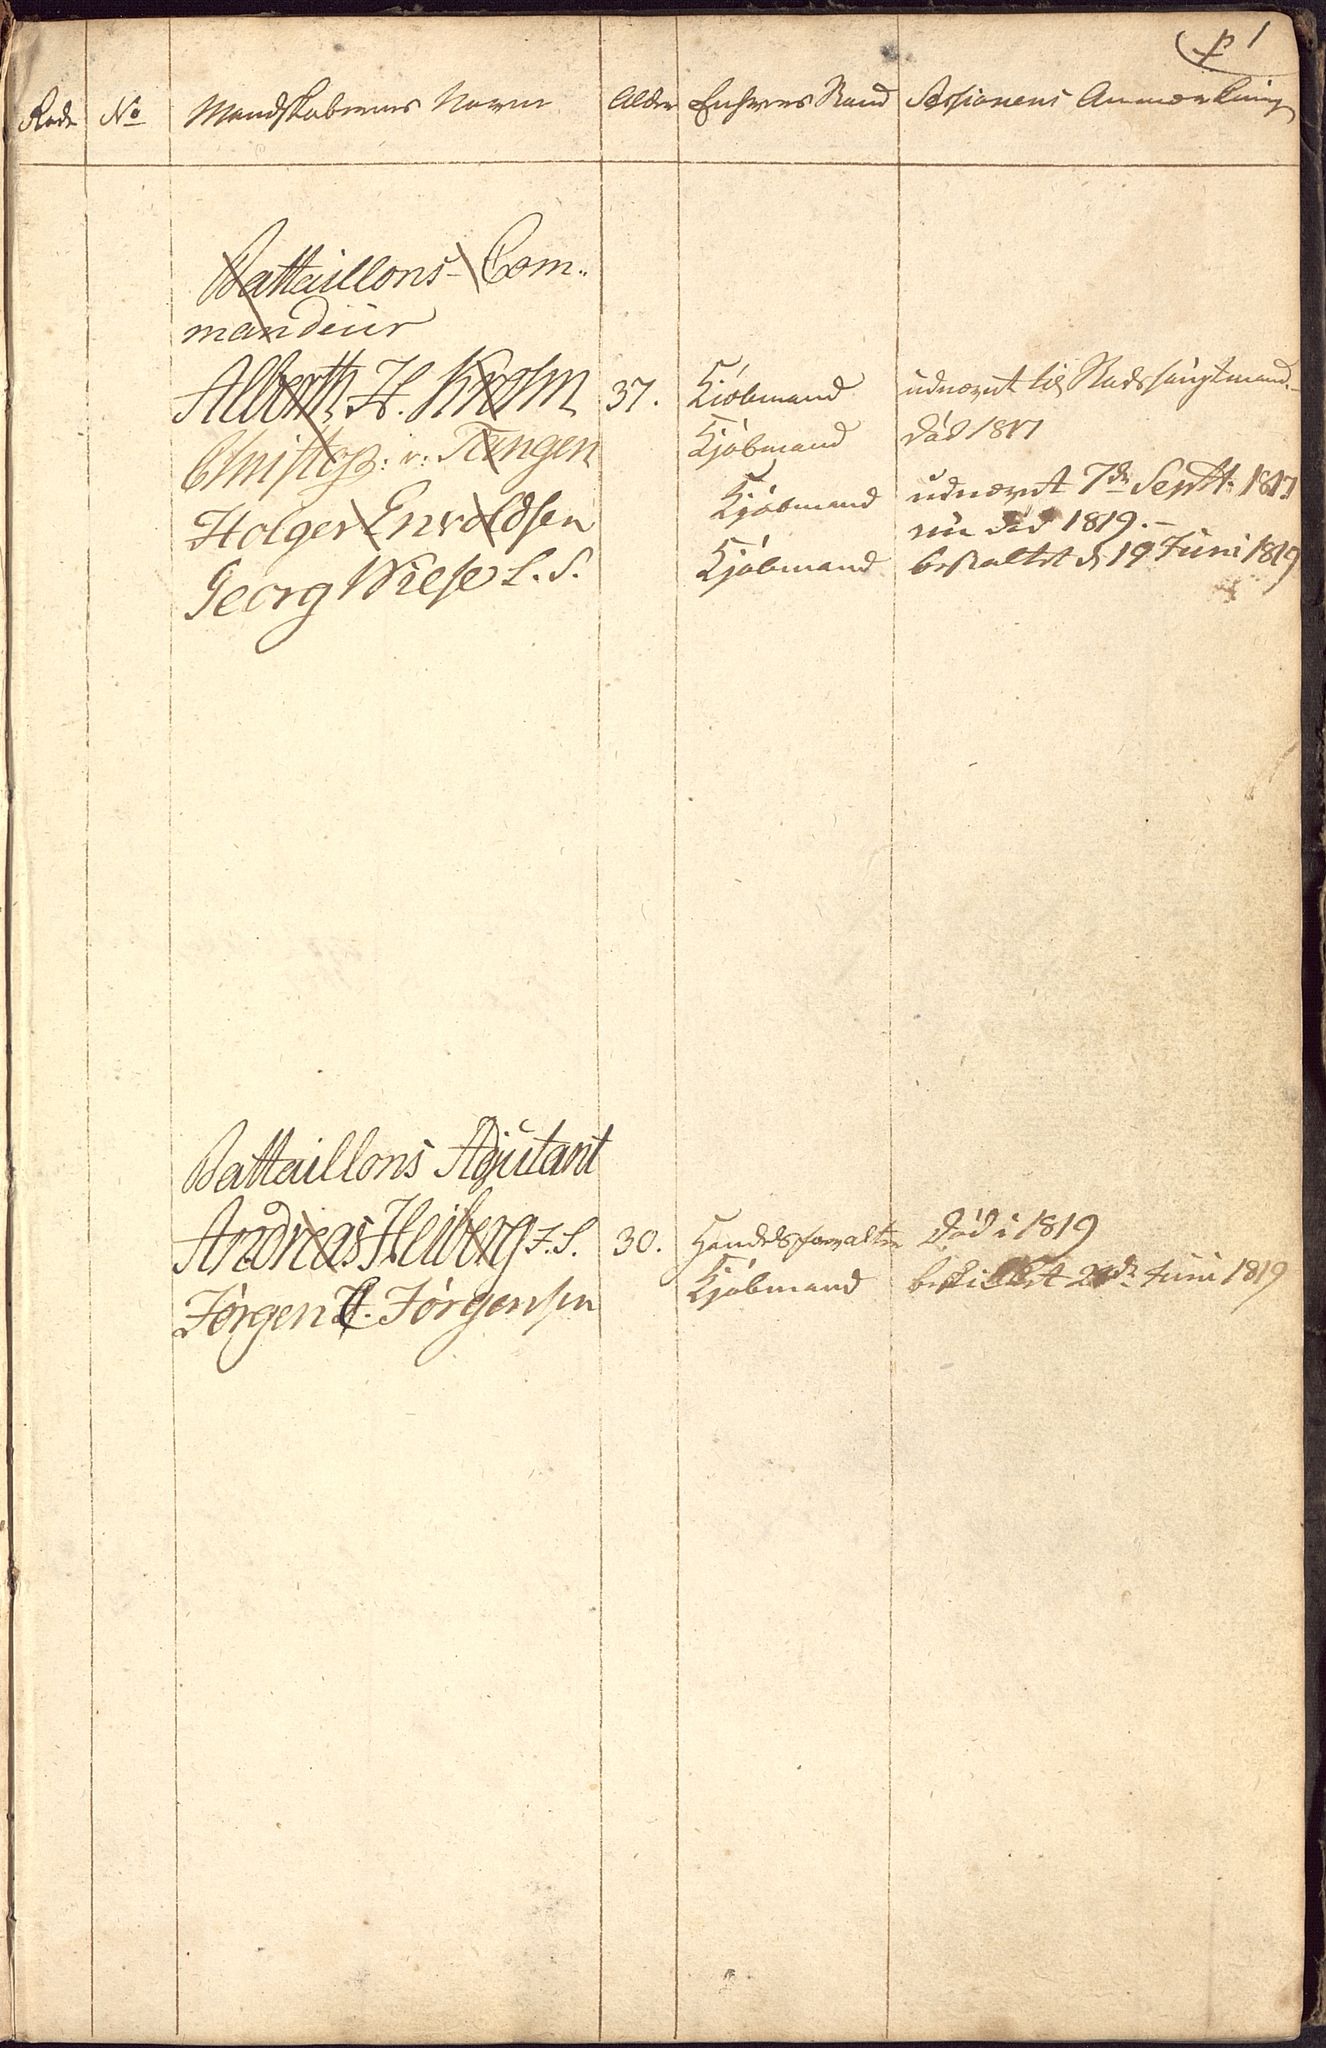 p 1
Rode No Mandskabernes Navne Alder Enhvers Stand Sessionens Anmærkning
Battaillons-Com-
mandeur
Alberth H. Krohn 37. Kiøbmand udnævnt til Stadshauptmand.
Christoph: v: Tangen Kjøbmand Død 1817
Holger Envoldsen Kjøbmand udnævnt 7de Septbr 1817
nu død 1819.-
Georg Wiese L.S. Kjøbmand beskaltet d 19 Juni 1819
Battaillons Adjutant
Andreas Heiberg J.S. 30. Handelsforvalter Død i 1819
Jørgen H. Jørgensen Kjøbmand beskikket 24de Juni 1819